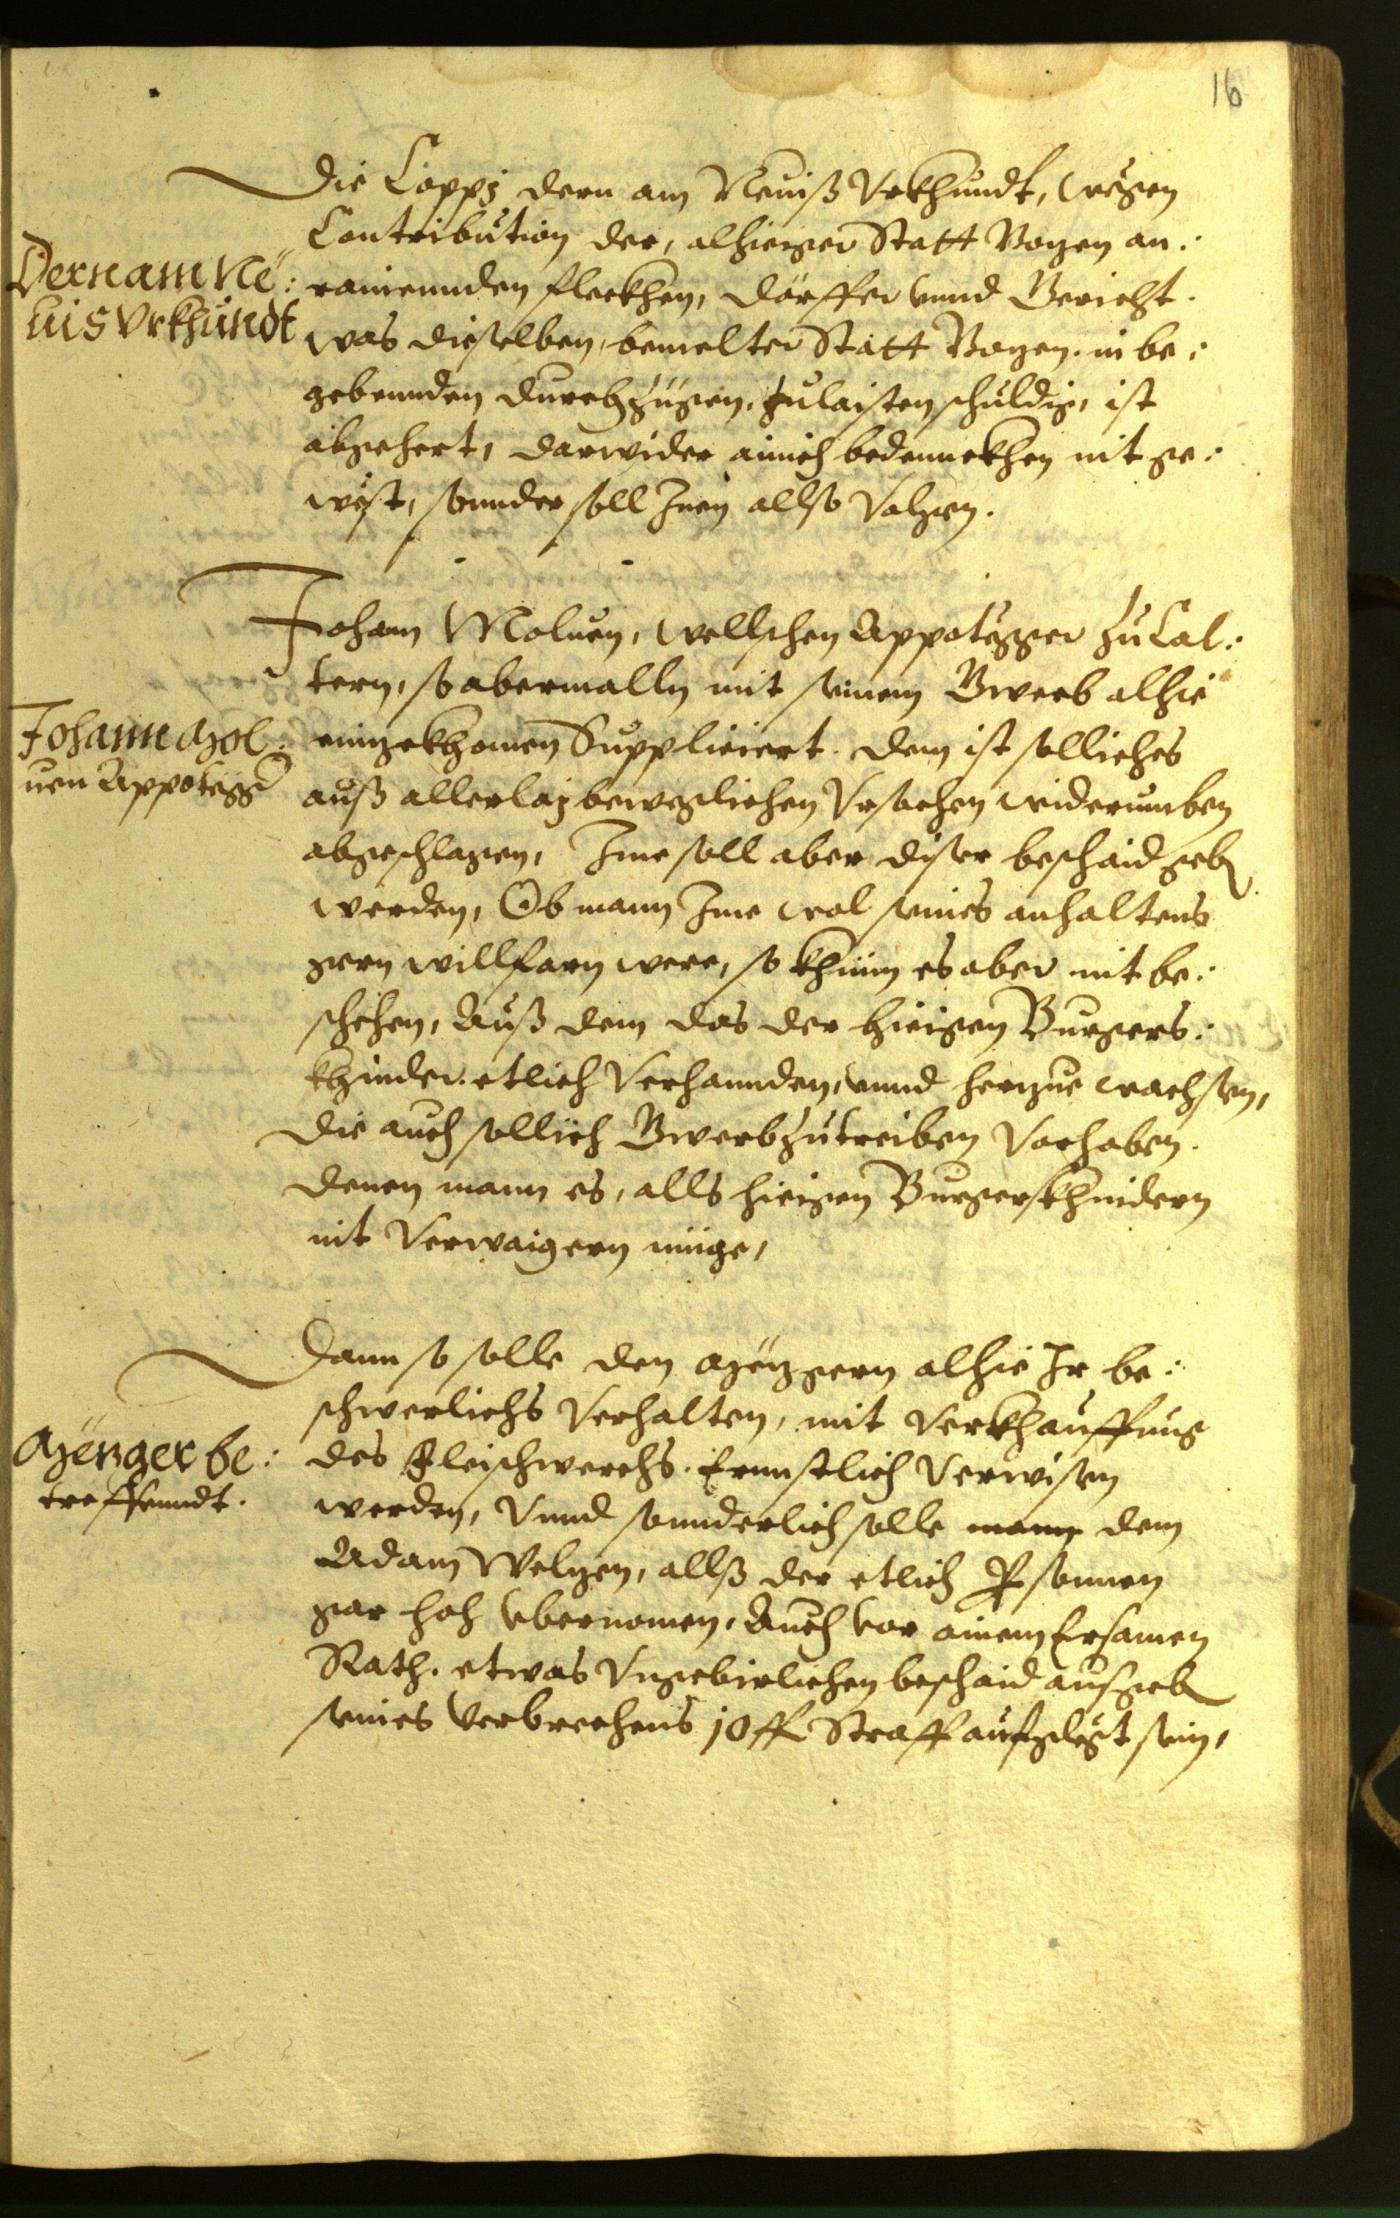 16
Die Coppj dern am Neuiß Vrkhundt, wegen
Contribution der, alhieiger Statt Bozen an:
Dern am Ne:
uis Vrkhundt
rainennden fleckhen, dörffer vnnd Gericht.
was dieselben, bemelter Statt Bozen. in be:
gebennden durchzügen, zulaisten schuldig, ist
abgehert, darwider ainich bedennckhen nit ge:
west, sonnder soll Inen allso Volgen.
Johann Moluen, wellschen Appotegger zu Cal:
tern, so abermalln mit seinem Gwerb alhie
Johann Mol:
uen Appotegg
eingekhomen Supplieiert. dem ist solliches
auß allerlaj beweglichen Vrsachen widerumben
abgeschlagen, Ime soll aber diser beschaid geb
werden, Ob mann Ime wol seines anhaltens
gern willfarn were, so khünn es aber nit be:
schehen, Auß dem das der hieigen Burgers:
khinder. etlich Verhannden, vnnd herzue wachsen,
die auch sollich Gwerb zutreiben Vorhaben.
denen mann es, alls hieigen Burgerskhindern
nit Verwaigern müge,
Dann so solle den Mezgern alhie Ir be:
schwerlichs Verhalten, mit Verkhauffung
Mezger be:
treffenndt.
des Fleischwerchs. Ernnstlich Verwisen
werden, Vnnd sonnderlich solle mann dem
Adam Welzen, allß der etlich Personen
gar hoch vbernomen, Auch vor ainem Ersamen
Rath. etwas Vngebirlichen beschaid ausgeb
seines Verbrechens 10 ff Straff aufgelegt sein,